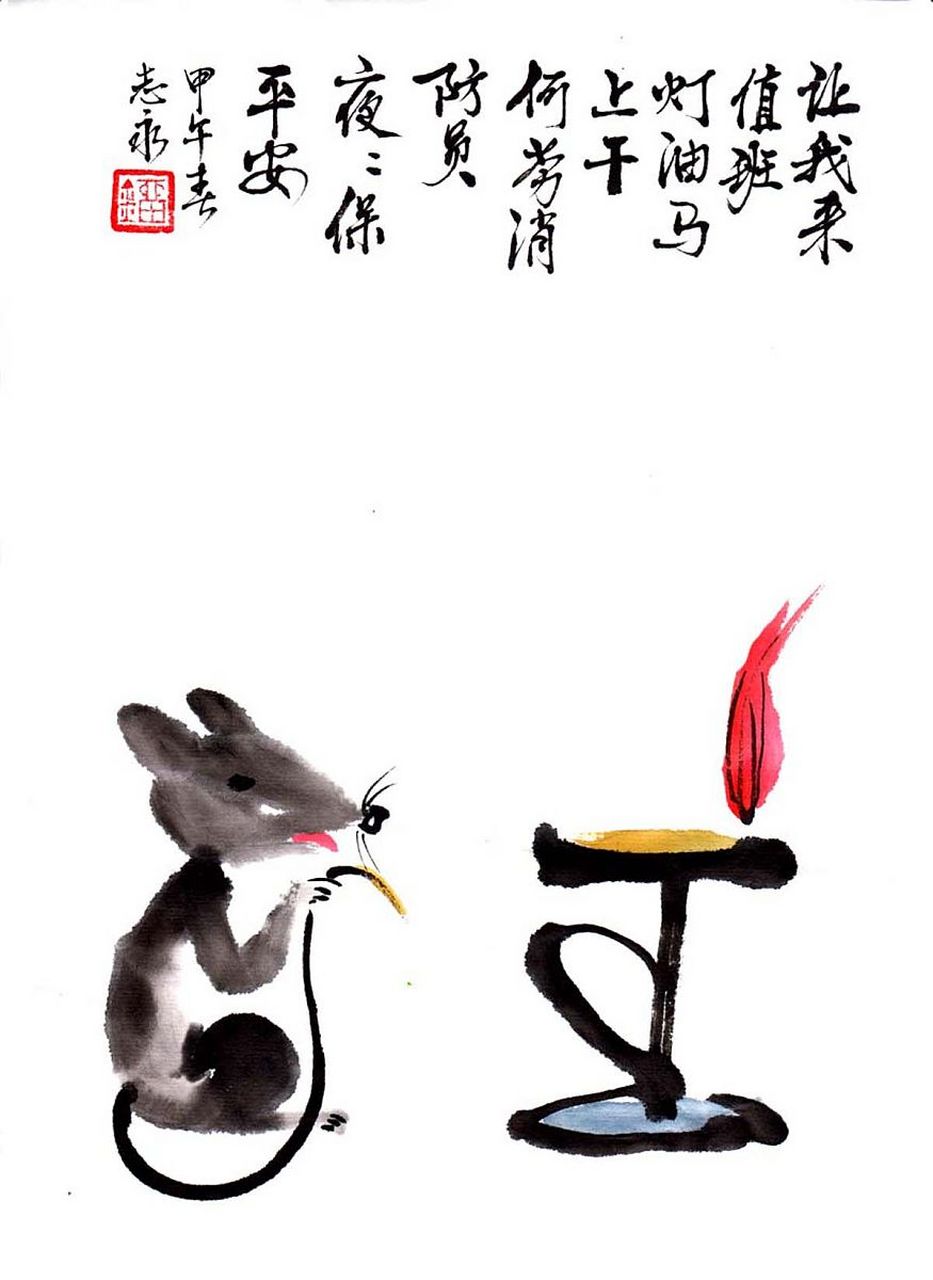 让我来
值班
灯油马
上干
何劳消
防员
夜〻保
平安
甲午春
志永